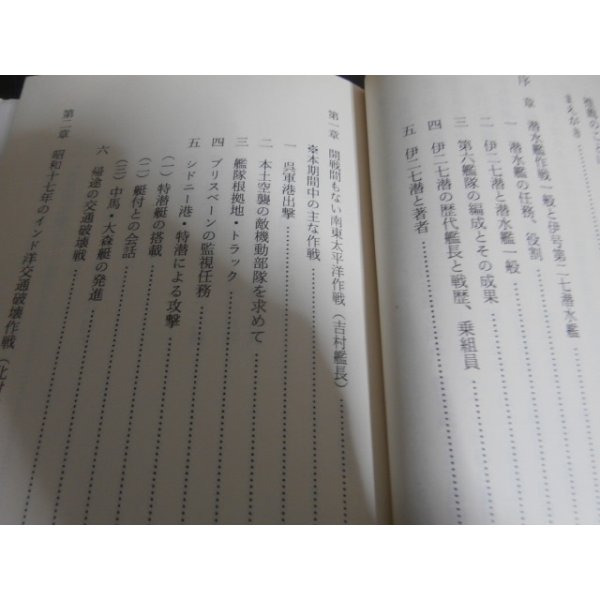 まえがき
序章 潜水艦作戦一般と伊号第二七潜水艦
一 潜水艦の任務、役割
二 伊二七潜と潜水艦一般
三 第六艦隊の編成とその成果
四 伊二七潜の歴代艦長と戦歴、乗組員
五 伊二七潜と著者
第一章 開戦間もない南東太平洋作戦（吉村艦長）
※本期間中の主な作戦
一 呉軍港出撃
二 本土空襲の敵機動部隊を求めて
三 艦隊根拠地・トラック
四 ブリスベーンの監視任務
五 シドニー港・特潜による攻撃
（一）特潜艇の搭載
（二）艇付との会話
（三）中馬・大森艇の発進
六 帰途の交通破壊戦
第二章 昭和十七年のインド洋交通破壊作戦（北村